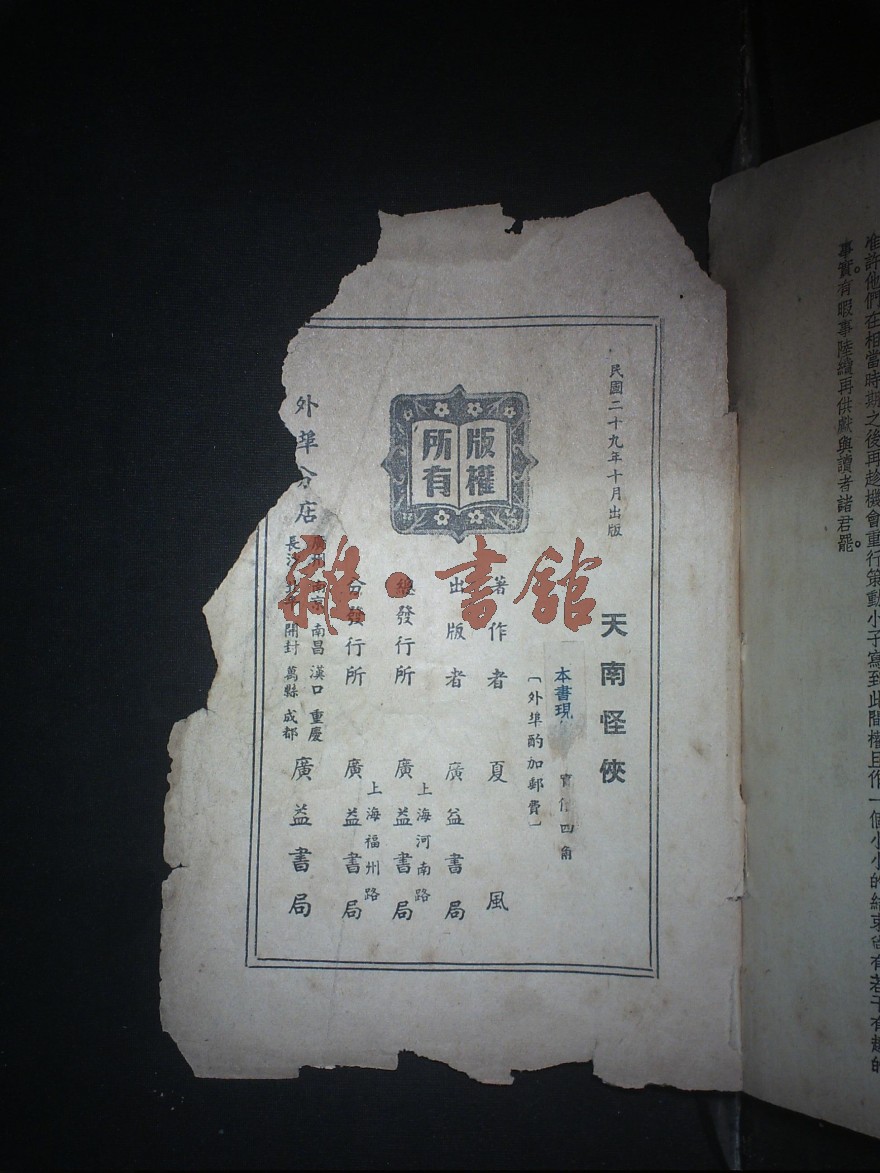 准許他們在相當時期之後再趁機會重行策動小子寫到此間權且作一個小小的結束尚有若干有趣的
事實有暇事陸續再供獻與讀者諸君罷。
民國二十九年十月出版
天南怪俠
本書現
實價四角
〔外埠酌加郵費〕
版權
所有
著作者 夏風
出版者 廣益書局
總發行所 上海河南路 廣益書局
分發行所 上海福州路 廣益書局
外埠分店 廣州 南京 南昌 漢口 重慶
長沙 北平 開封 萬縣 成都 廣益書局
雜·書館